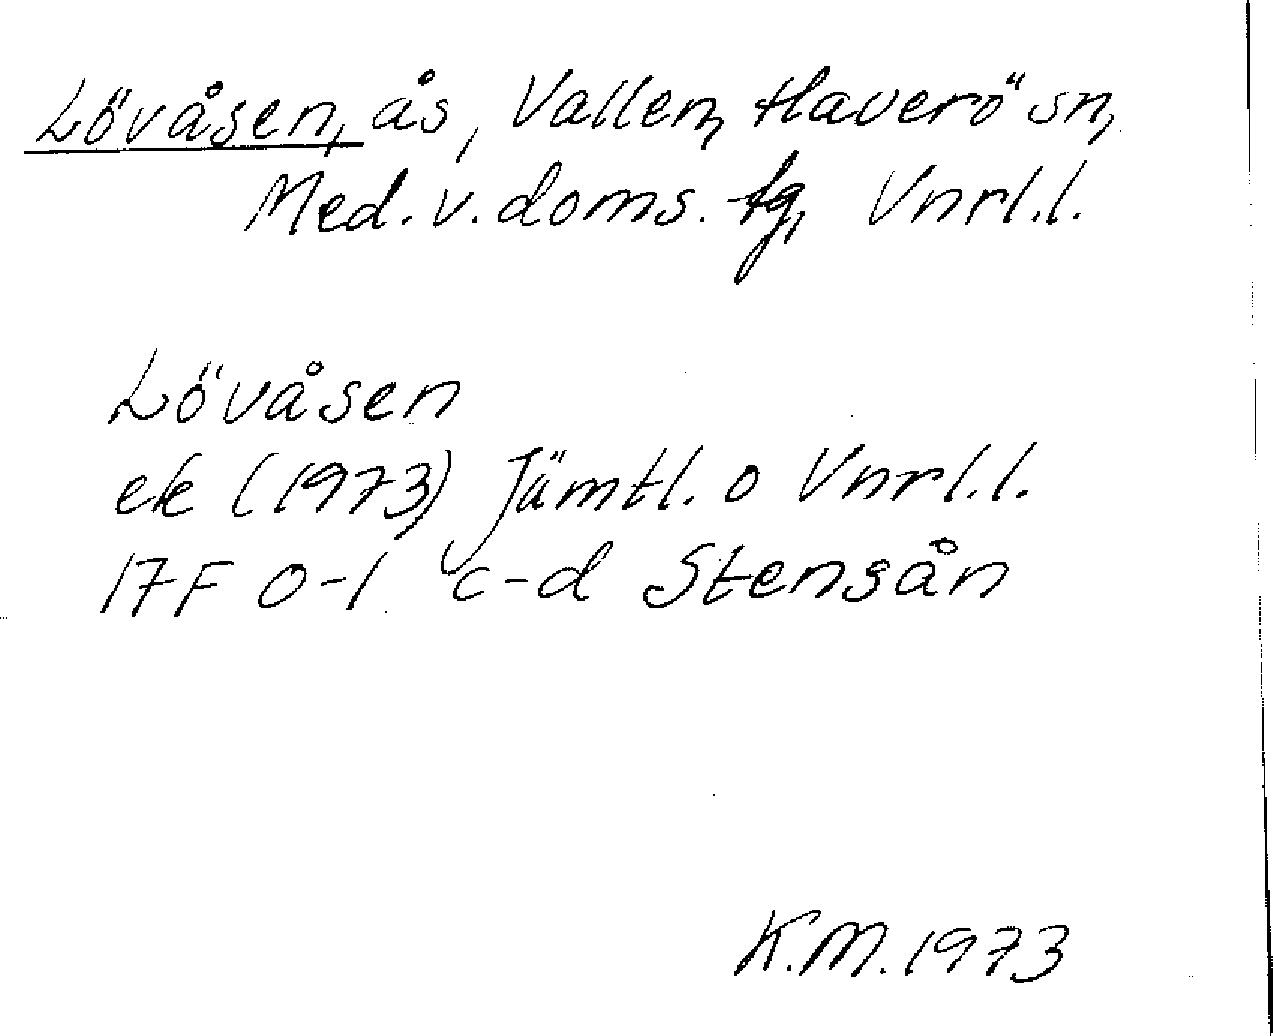 Lövåsen, ås, Vallen, Haverö sn,
Med. v. doms. tg, Vnrl.l.
Lövåsen
ek (1973) Jämtl. o Vnrl.l.
17F 0-1 c-d Stensån
K.M. 1973